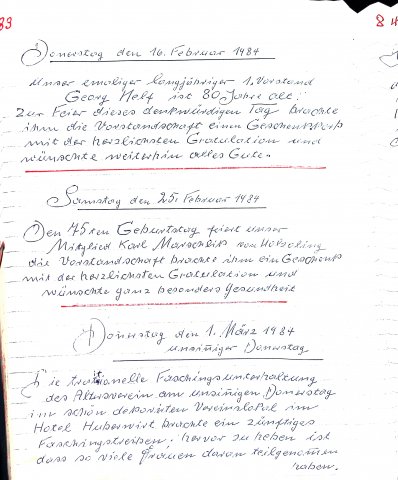 83
84
Donerstag den 16. Februar 1984
Unser emaliger langjähriger 1. Vorstand
Georg Helf ist 80 Jahre alt.
Zur Feier dieses denkwürdigen Tag brachte
ihm die Vorstandschaft einen Geschenkkorb
mit der herzlichsten Gratulation und
wünschte weiterhin alles Gute.
Samstag den 25. Februar 1984
Den 75ten Geburtstag feiert unser
Mitglied Karl von
die Vorstandschaft brachte ihm ein Geschenk
mit der herzlichsten Gratulation und
wünschte ganz besonders Gesundheit
Donerstag den 1. März 1984
unsiniger Donerstag
Die traditionelle Faschingsunterhaltung
des Altersverein am unsinigen Donerstag
im schön dekorirten Vereinslokal im
Hotel Huberwirt brachte ein zünftiges
Faschingstreiben, hervor zu heben ist
dass so viele Frauen daran teilgenommen
haben.